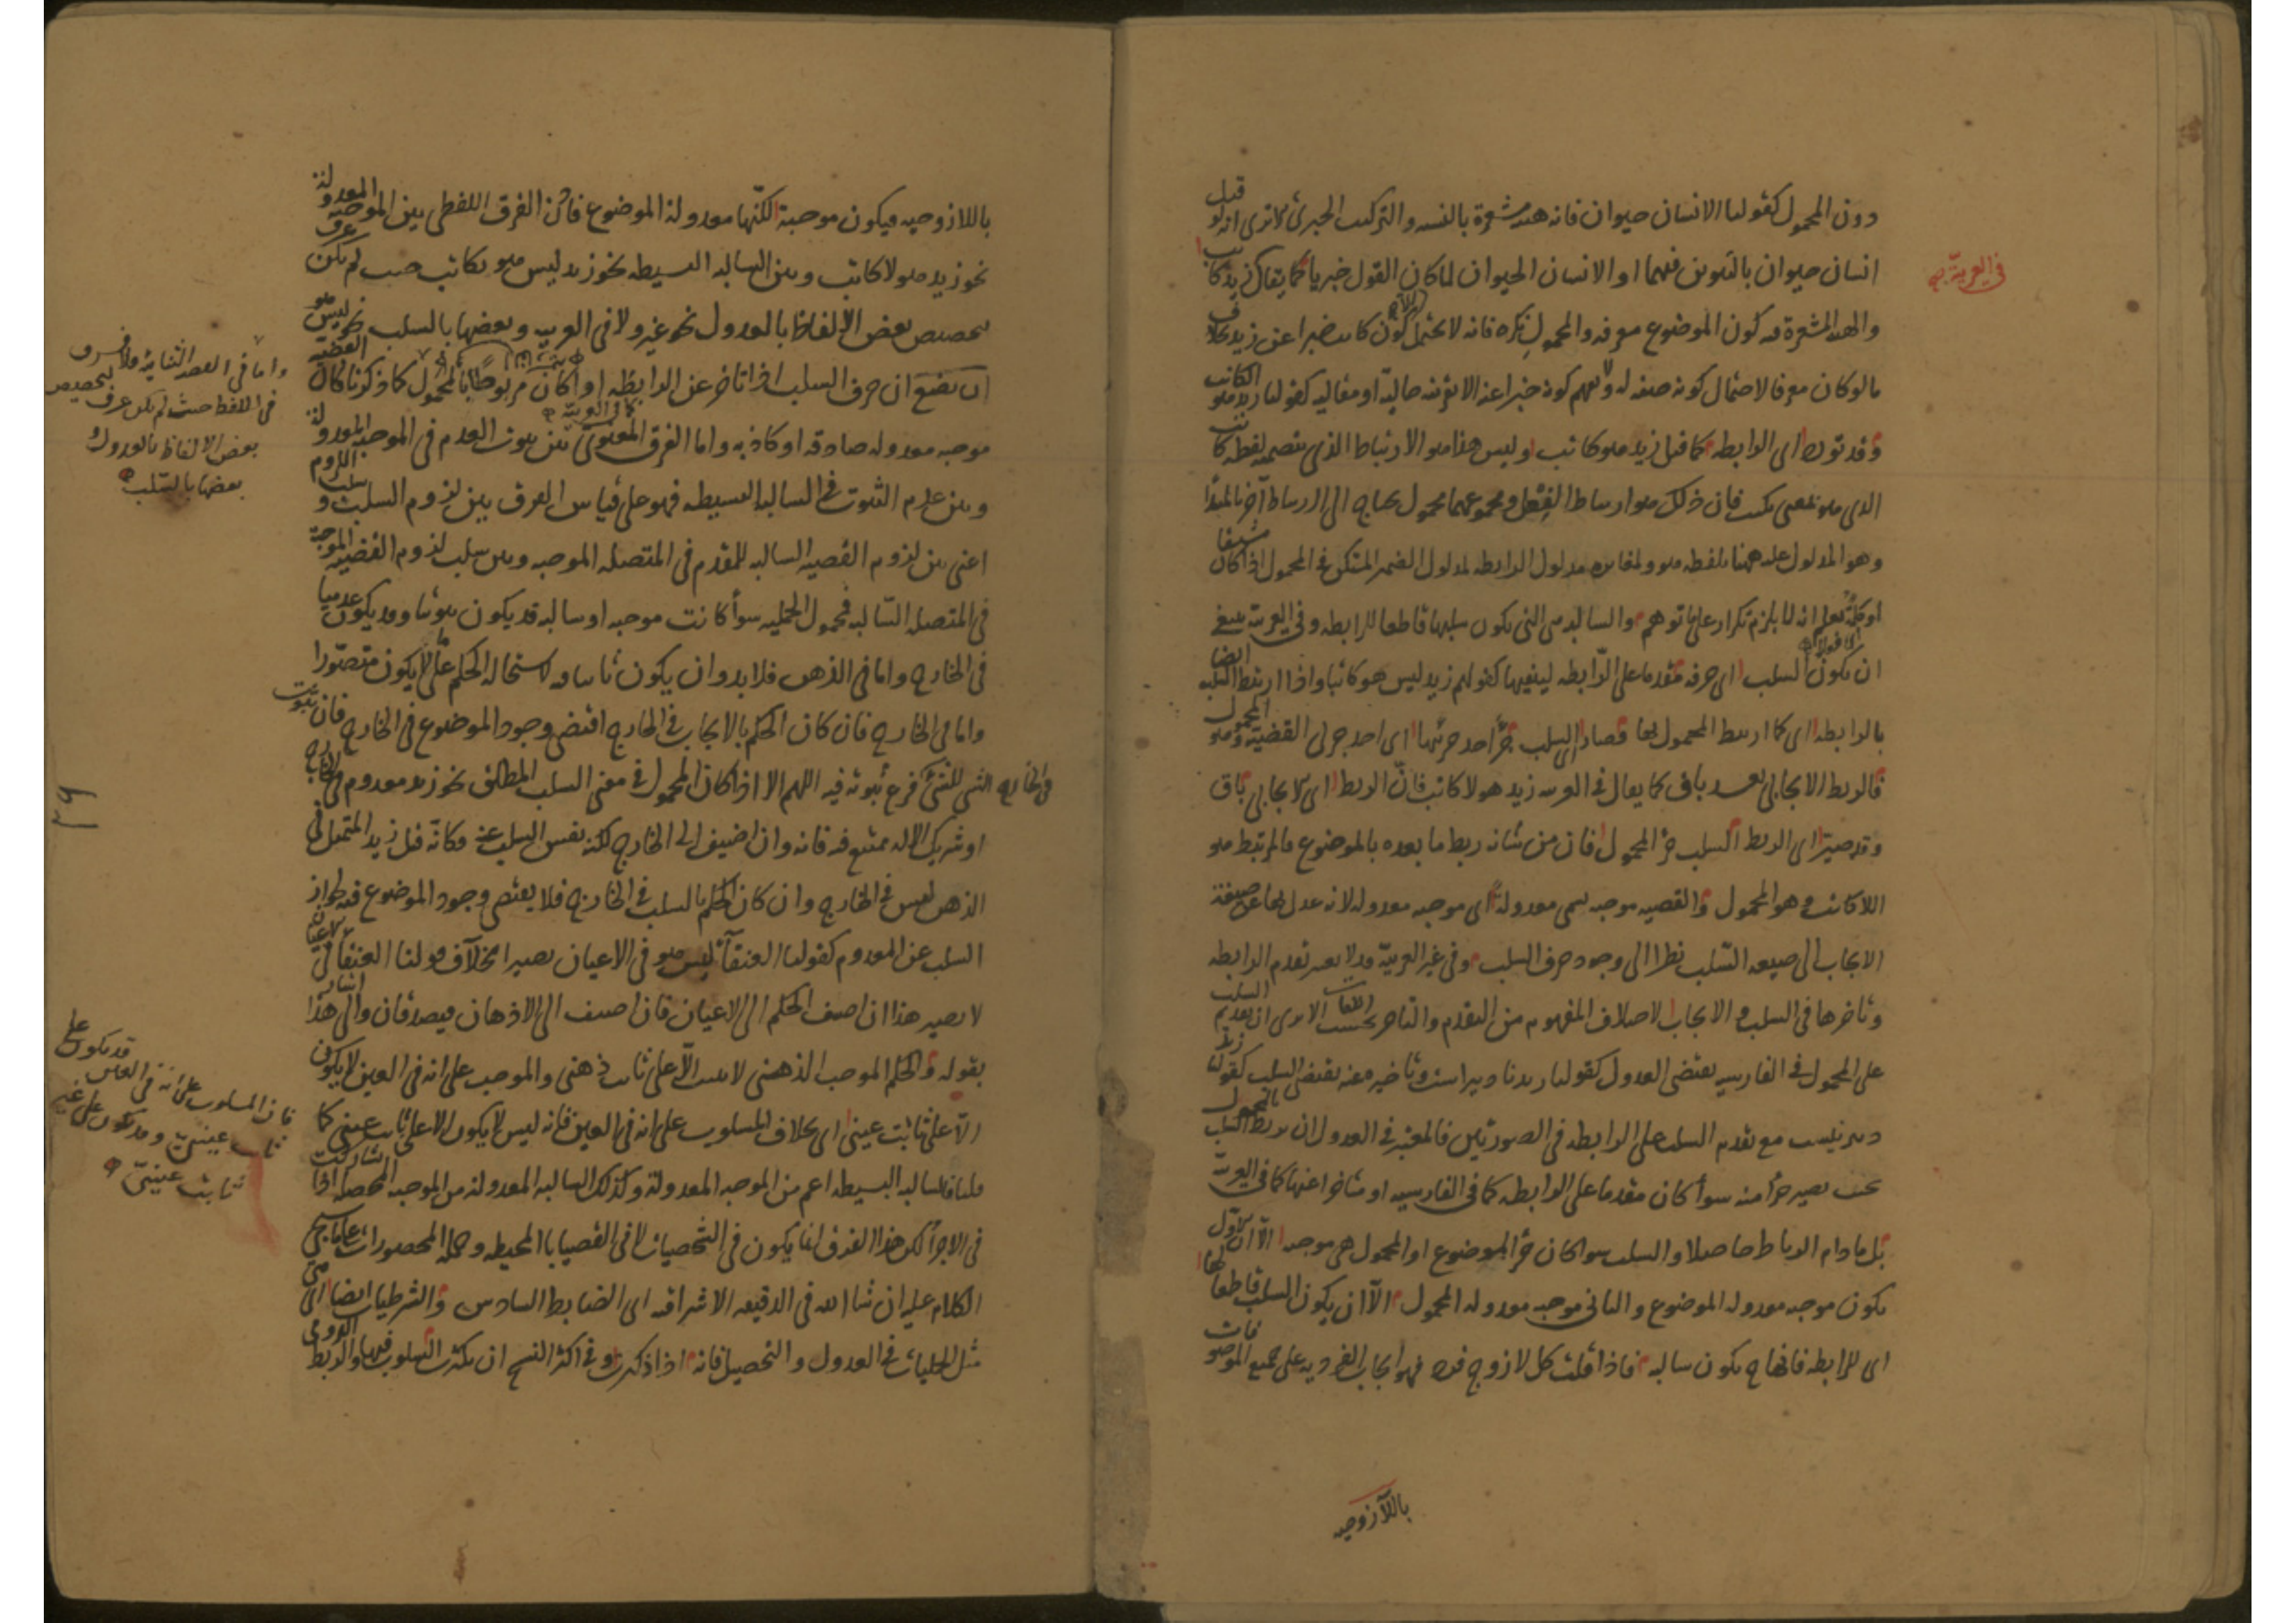 دون المحمول كقولنا الانسان حيوان فانه هيئة مشعرة بالنسبه والتركيب الخبرى الا ترى انه لو قيل
انسان حيوان بالتنوين فيهما او الانسان الحيوان لما كان القول خبريا كما يقال زيد كاتب
فى العربية
والهيئة المشعرة هى كون الموضوع معرفه والمحمول نكره فانه لا يحتمل كون كاتب خبرا عن زيد بخلاف
ما لو كان معرفا لاحتمال كونه صفه له ولا يفهم كونه خبرا عنه الا بقرينه حاليه او مقاليه كقولنا زيد هو الكاتب
وقد تورد اى الرابطه كما قيل زيد هو كاتب وليس هذا هو الارتباط الذى يتضمنه لفظه كاتب
الذى هو بمعنى يكتب فان ذلك هو ارتباط الفعل ومجموعهما محمول يحتاج الى ارتباط آخر بالمبتدأ
وهو المدلول عليه ههنا بلفظه هو ولمغايره مدلول الرابطه لمدلول الضمير المتكن فى المحمول اذا كان مشتقا
او كلمة يعلم انه لا يلزم تكرار على ما توهم والسالبه هى التى يكون سلبها قاطعا للرابطه وفى العربية ينبغى
ان يكون السلب اى حرفه مقدما على الرابطه لينفيها كقولهم زيد ليس هو كاتبا واذا ارتبط السلب ايضا
بالرابطه اى كما ارتبط المحمول بها فصار السلب جزء احد جزئيها اى احد جزئى القضية وهو المحمول
فالربط الايجابى بعد باق كما يقال فى العربيه زيد هو لا كاتب فان الربط اى الايجابى باق
وقد صير اى الربط السلب جزء المحمول فان من شانه ربط ما بعده بالموضوع فالمرتبط هو
اللاكاتب وهو المحمول والقضيه موجبه تسمى معدولة اى موجبه معدوله لانه عدل بها عن صيغة
الايجاب الى صيغه السلب نظرا الى وجود حرف السلب وفى غير العربية قد لا يعتبر تقدم الرابطه
وتأخرها فى السلب والايجاب لاختلاف المفهوم من التقدم والتاخر بحسب اللغات الا يرى ان تقديم السلب
على المحمول فى الفارسيه يقتضى العدول كقولنا زيد نا دبير است وتأخيره عنه يقتضى السلب كقولنا زيد
دبير نيست مع تقدم السلب على الرابطه فى الصورتين فالمعتبر فى العدول ان يرتبط السلب بالمحمول
بحيث يصير جزأ منه سوأ كان مقدما على الرابطه كما فى الفارسيه او متأخرا عنها كما فى العربية
بل ما دام الرباط حاصلا والسلب سوا كان جزء الموضوع او المحمول هى موجبه الا ان الاول
يكون موجبه معدوله الموضوع والثانى موجبه معدوله المحمول الا ان يكون السلب قاطعا لها
اى للرابطه فانها ح يكون سالبه فاذا قلت كل لازوج فرد فهو ايجاب الفرديه على جميع الموصوفات
باللازوجيه
باللازوجيه فيكون موجبة لكنها معدولة الموضوع فاذن الفرق اللفظى بين الموجبه المعدولة
نحو زيد هو لا كاتب وبين السالبه البسيطه نحو زيد ليس هو بكاتب حيث لم يكن عرف
بتخصيص بعض الالفاظ بالعدول نحو غير ولا فى العربيه وبعضها بالسلب نحو ليس هو
ان حرف السلب اذا تاخر عن الرابطه او كان مربوطا بالمحمول كما ذكرنا كان القضية
موجبه معدوله صادقه او كاذبه واما الفرق المعنوى بين ثبوت العدم فى الموجبه المعدولة
وبين عدم الثبوت فى السالبه البسيطه فهو على قياس الفرق بين لزوم السلب وسلب اللزوم
اعنى بين لزوم القضيه السالبه للمقدم فى المتصله الموجبه وبين سلب لزوم القضيه الموجبة
فى المتصله السالبه فمحمول الحمليه سوأ كانت موجبه او سالبه قد يكون ثبوتيا وقد يكون عدميا
فى الخارج واما فى الذهن فلا بد وان يكون ثابتا فيه لاستحاله الحكم على ما لا يكون متصورا
واما فى الخارج فان كان الحكم بالايجاب فى الخارج اقتضى وجود الموضوع فى الخارج فان ثبوت
الشى للشئ فى الخارج فرع ثبوته فيه اللهم الا اذا كان المحمول فى معنى السلب المطلق نحو زيد معدوم فى الخارج
او شريك الاله ممتنع فيه فانه وان اضيف الى الخارج لكنه نفس السلب عنه وكأنه قيل زيد المتمثل فى
الذهن ليس فى الخارج وان كان الحكم بالسلب فى الخارج فلا يقتضى وجود الموضوع فيه لجواز
السلب عن المعدوم كقولنا العنقآ ليس هو فى الاعيان بصيرا بخلاف قولنا العنقا فى الاعيان
لا بصير هذا ان اضيف الحكم الى الاعيان فان اضيف الى الاذهان فيصدقان والى هذا اشار
بقوله والحكم الموجب الذهنى لا يثبت الا على ثابت ذهنى والموجب على انه فى العين لا يكون
الا على ثابت عينى اى بخلاف المسلوب على انه فى العين فانه ليس لا يكون الا على ثابت عينى كما
قلنا فالسالبه البسيطه اعم من الموجبه المعدولة وكذلك السالبه المعدولة من الموجبه المحصله اذا اشاركت
فى الاجزأ لكن هذا الفرق انما يكون فى الشخصيات لا فى القضيا المحيطه وجمله المحصورات على ما سيجئ
الكلام عليه ان شا الله فى الدقيقه الاشراقيه اى الضابط السادس والشرطيات ايضا اى هى
مثل الحمليات فى العدول والتحصيل فانه اذا ذكرت وفى اكثر النسخ ان تكثرت السلوب فيها والربط اللزومى
واما فى الغير الثنائية فلا فرق
فى اللفظ حيث لم يكن عرف بتخصيص
بعض الالفاظ بالعدول و
بعضها بالسلب
فان المسلوب على انه فى العين قد يكون على
ثابت عينى وقد يكون على غير
ثابت عينى